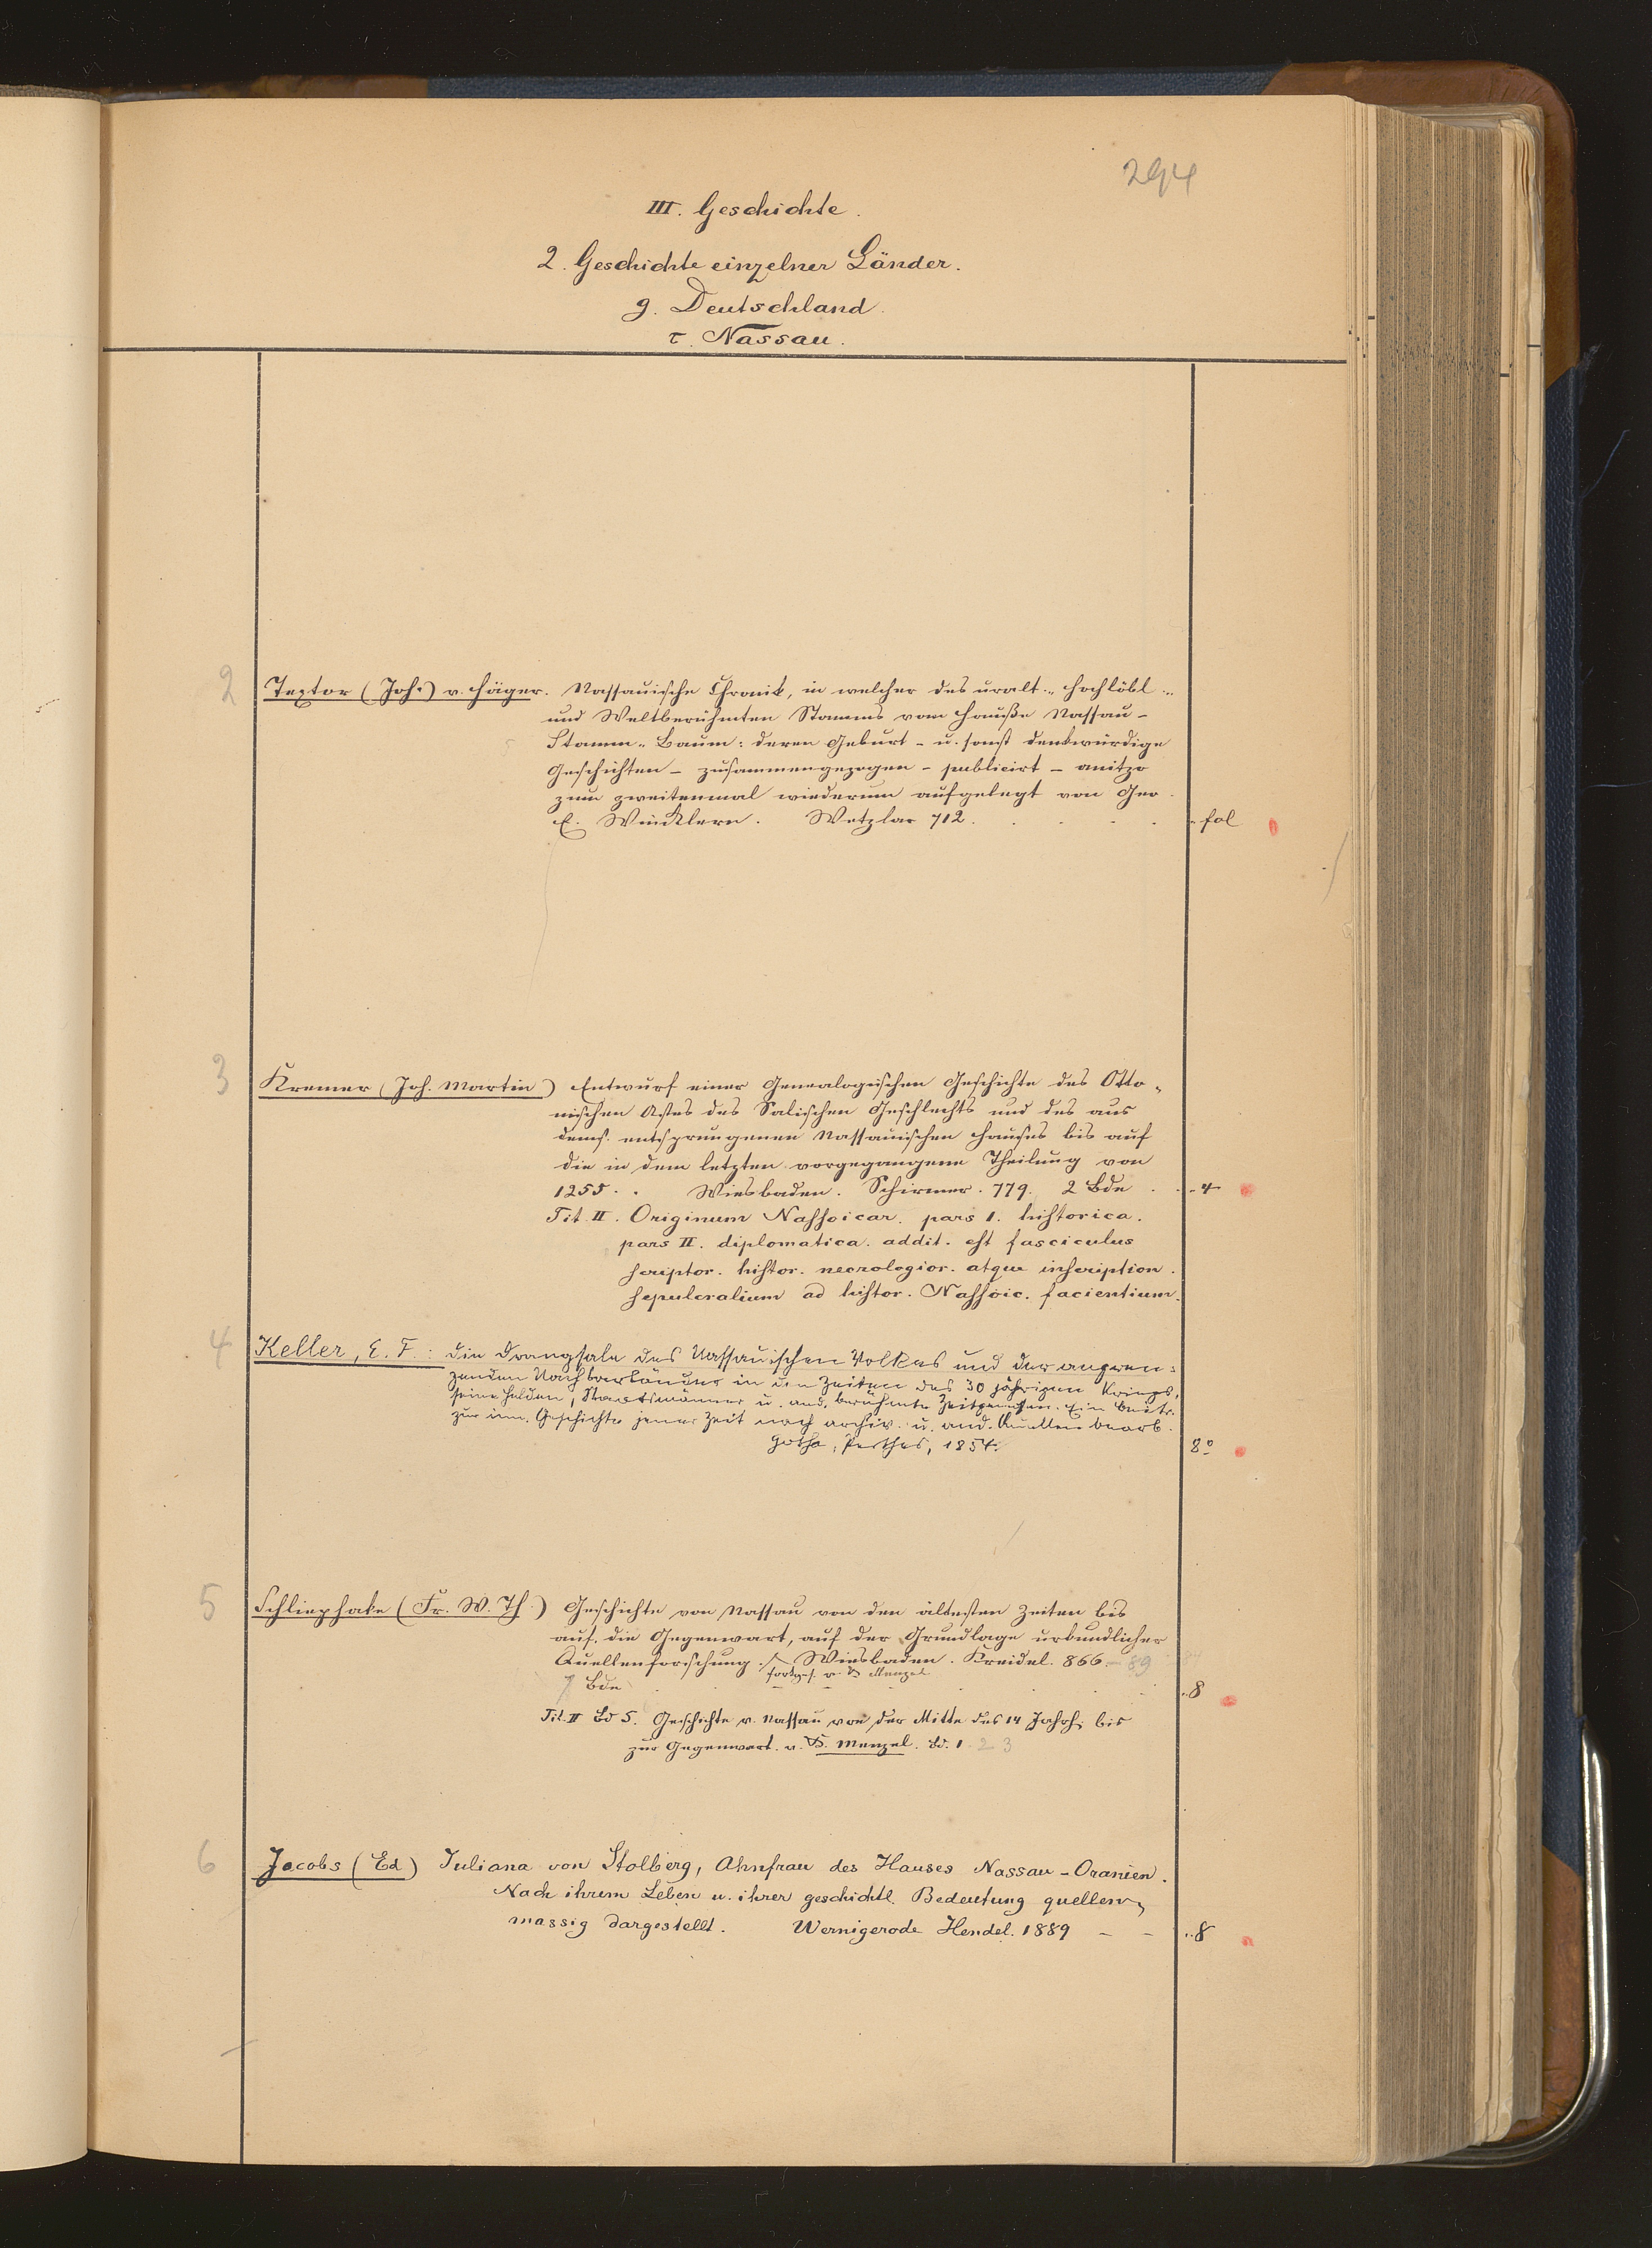 294
III. Geschichte.
2. Geschichte einzelner Länder.
g. Deutschland.
τ. Nassau.
2
Textor (Joh.) v. Häger. Nassauische Chronik, in welcher des uralt- hochlöbl-
und Weltberühmten Stamms vom Hauße Nassau-
Stamm-Baum: deren Geburt- u. sonst denkwürdige
Geschichten - zusammengezogen - publicirt - anitzo
zum zweitenmal wiederum aufgelegt von Geo.
E. Wincklern. Wetzlar 712. . . . . fol
3
Kremer (Joh. Martin) Entwurf einer Genealogischen Geschichte des Otto-
nischen Astes des Salischen Geschlechts und des aus
dems. entsprungenen Nassauischen Hauses bis auf
die in dem letzten vorgegangene Theilung von
1255. . Wiesbaden. Schirmer. 779. 2 Bde . . 4
Tit. II. Originum Nassoicar. pars 1. historica.
pars II. diplomatica. addit. est fasciculus
scriptor. histor. necrologior. atque inscription.
sepulcralium ad histor. Nassoic. facientium.
4
Keller, E. F.: Die Drangsale des Nassauischen Volkes und der angren-
zenden Nachbarländer in den Zeiten des 30 jährigen Kriegs,
seine Helden, Staatsmänner u. and. berühmte Zeitgenossen. Ein Beitr.
zur inn. Geschichte jener Zeit nach archiv. u. and. Quellen bearb.
Gotha, Perthes, 1854. 8º
5
Schliephake (Fr. W. Th.) Geschichte von Nassau von den ältesten Zeiten bis
auf die Gegenwart, auf der Grundlage urkundlicher
Quellenforschung. Wiesbaden. Kreidel. 866.-89
fortges. v. K. Menzel
7 Bde . . . . 8
Tit. II Bd 5. Geschichte v. Nassau von der Mitte des 14 Jahrh. bis
zur Gegenwart. v. K. Menzel. Bd. 1. 2 3
6
Jacobs (Ed) Juliana von Stolberg, Ahnfrau des Hauses Nassau-Oranien.
Nach ihrem Leben u. ihrer geschichtl. Bedeutung quellen-
massig dargestellt. Wernigerode Hendel. 1889 - - 8